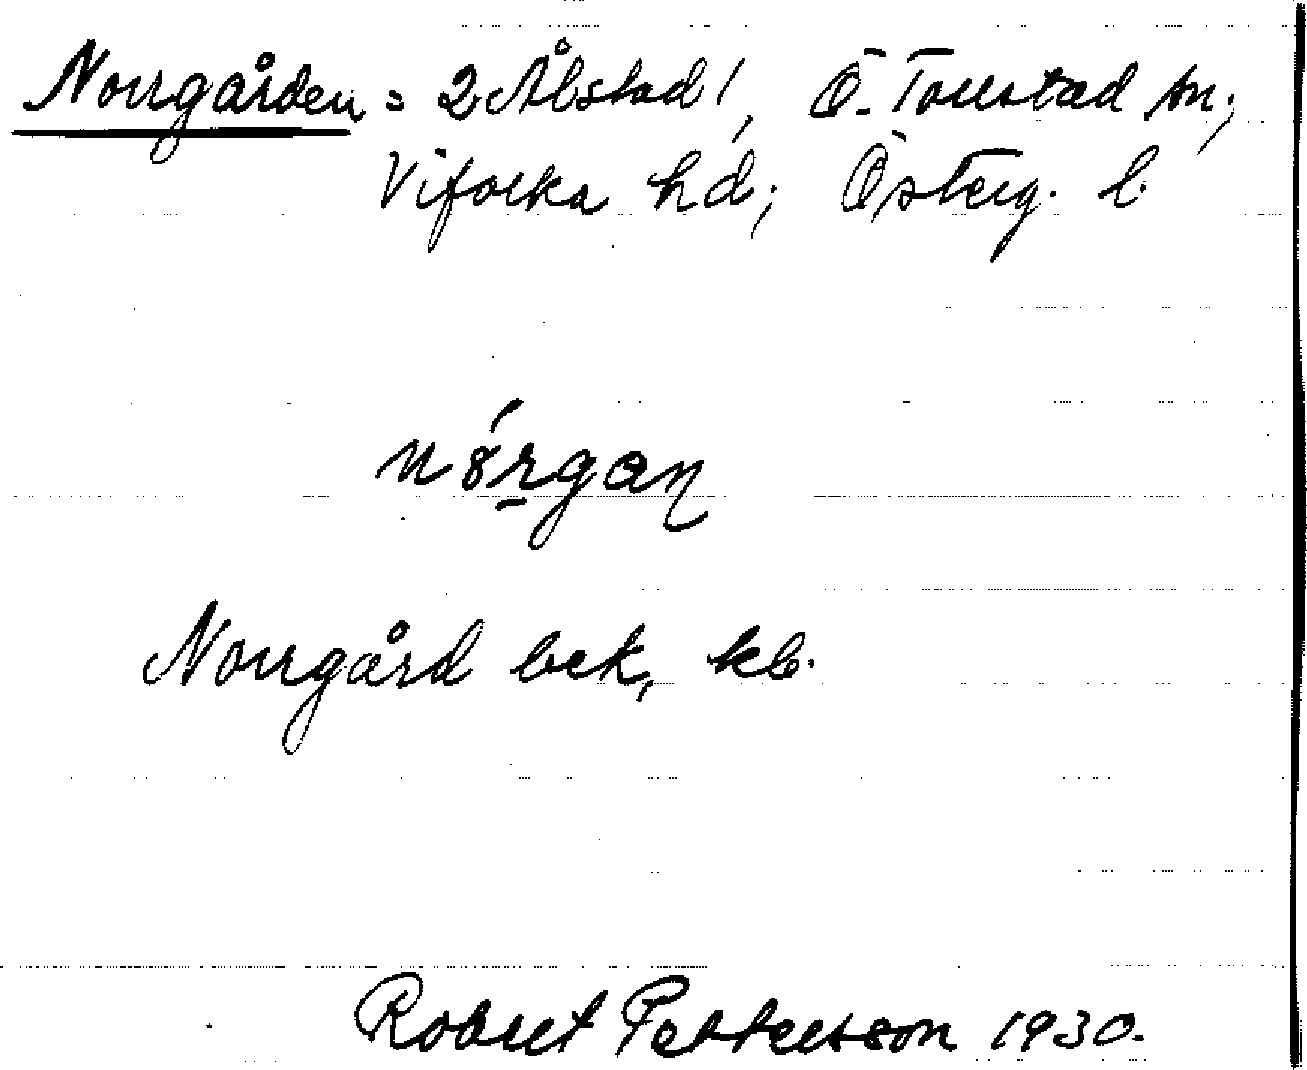 Norrgården = 2 Ålstad!, Ö. Tollstad sn;
Vifolka hd; Österg. l.
nó̤rgaɳ
Norrgård bek, kb.
Robert Pettersson 1930.